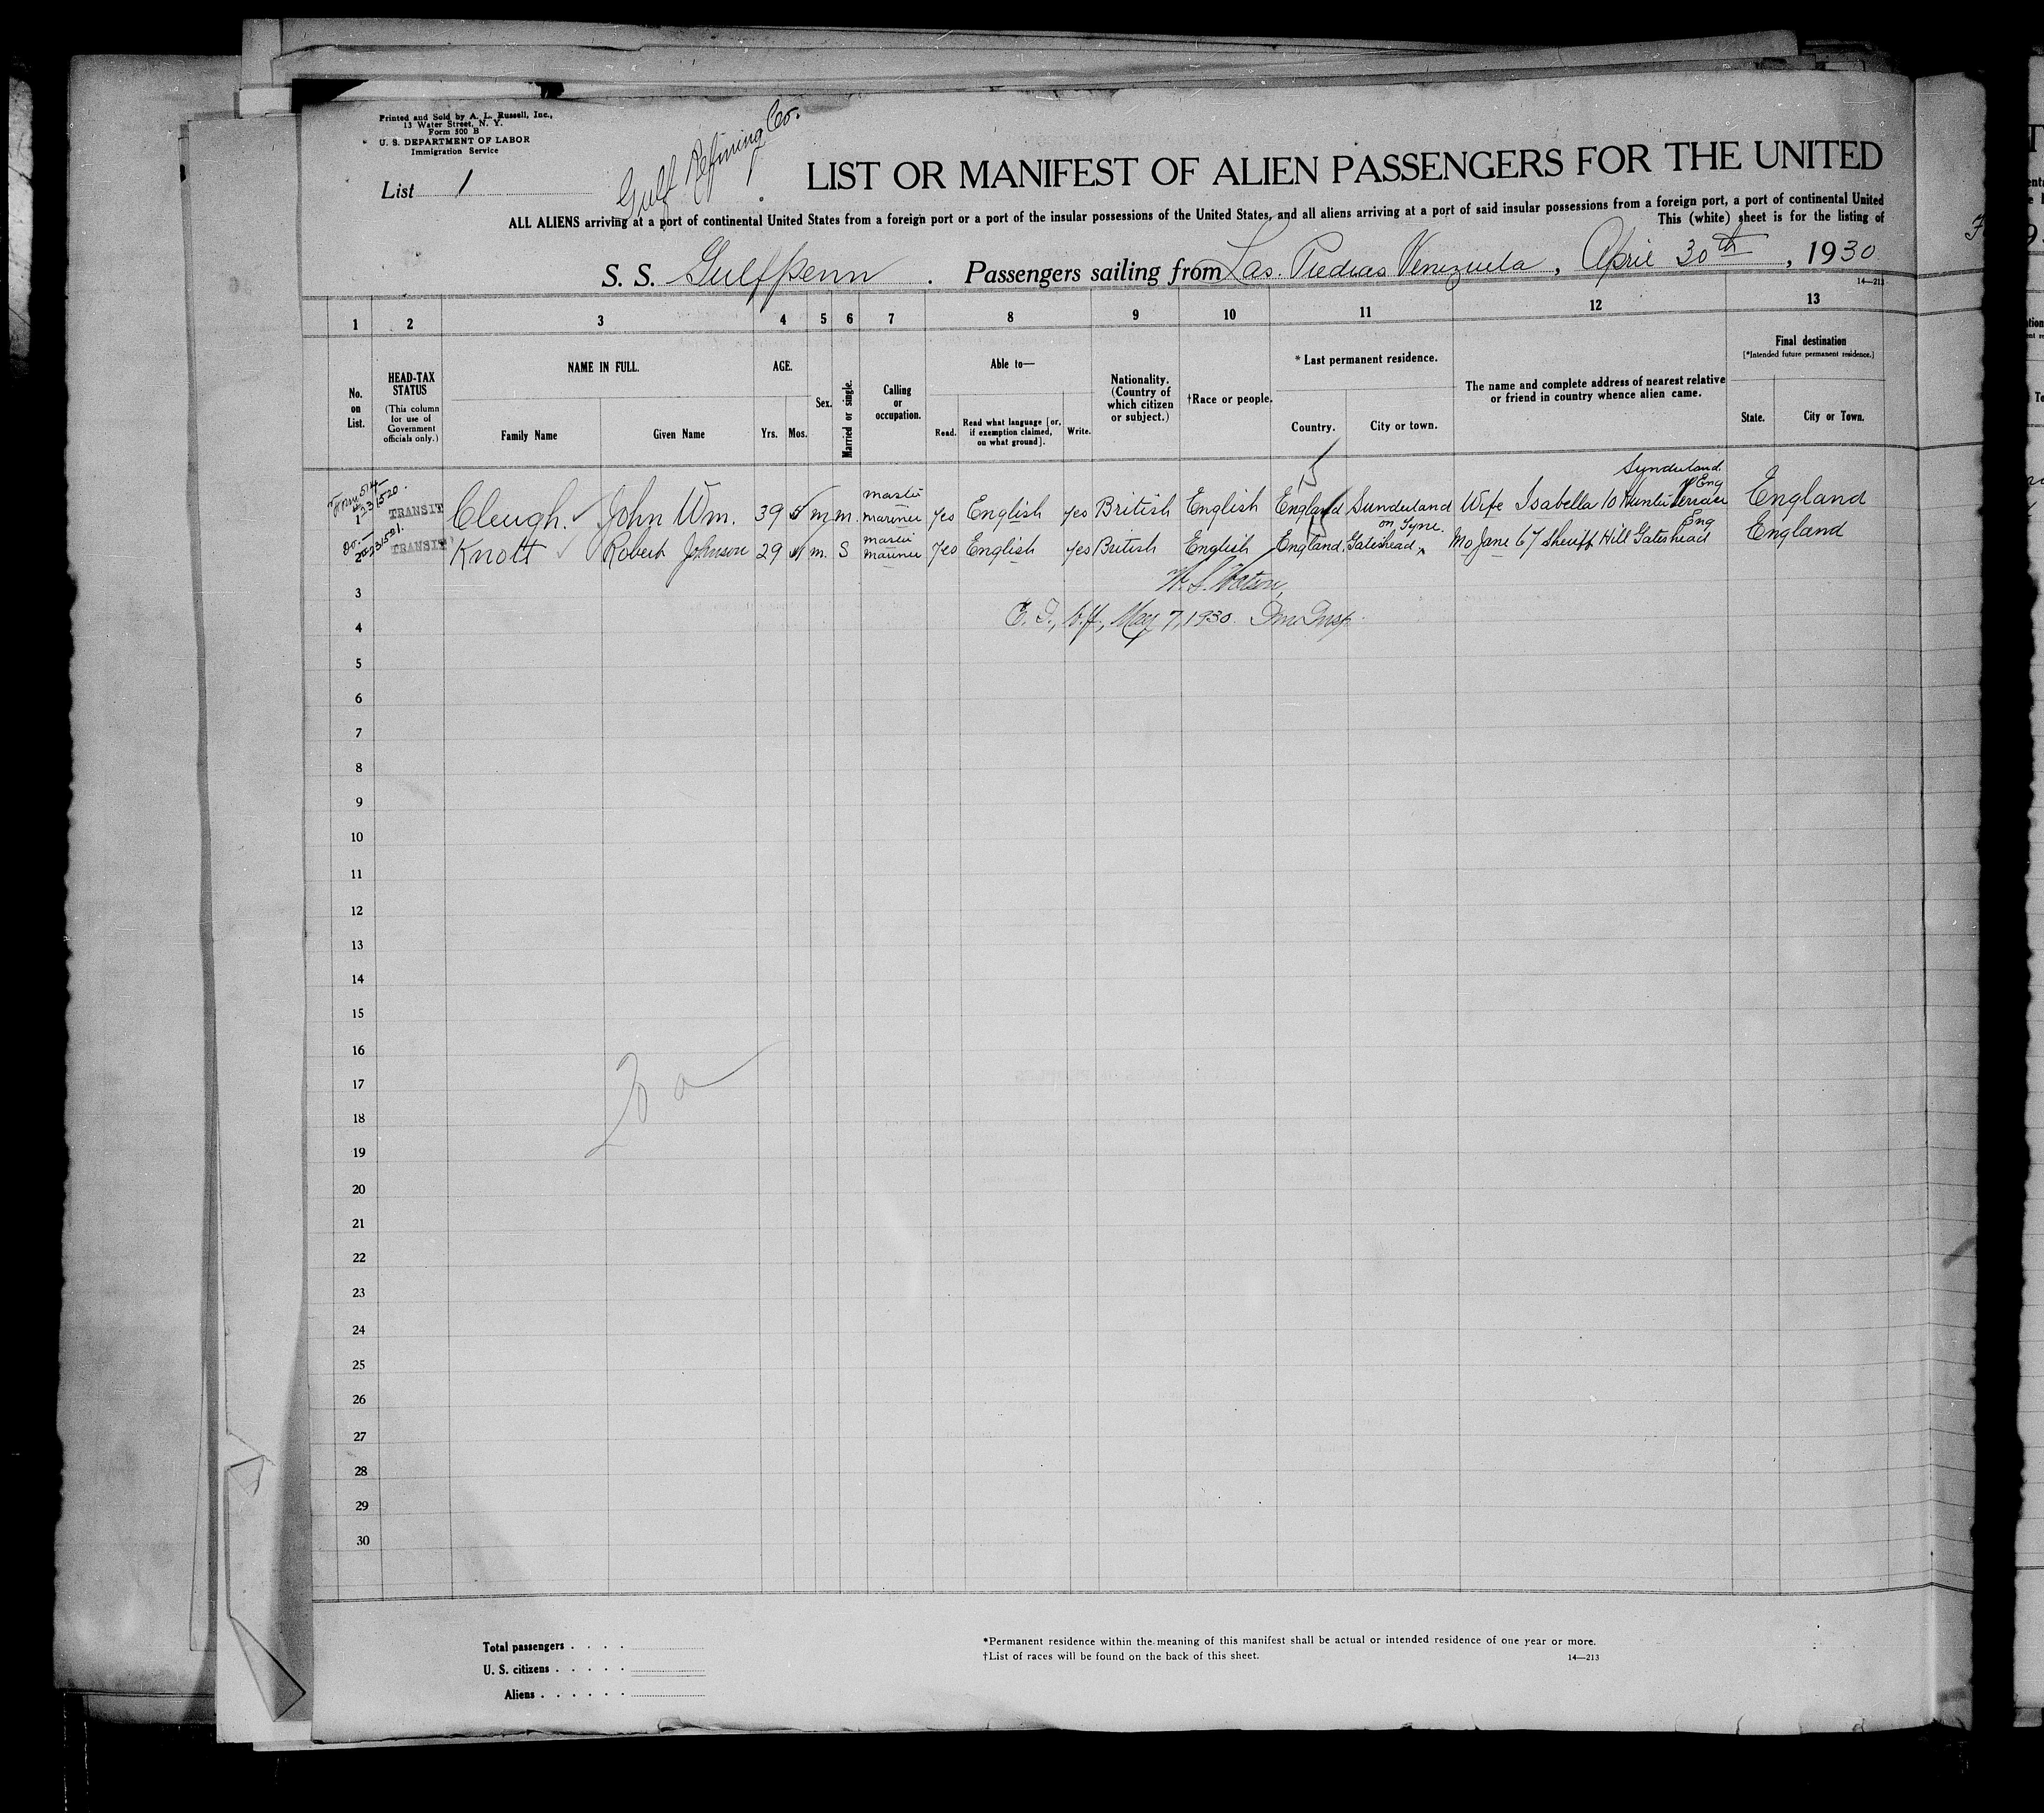 Printed and Sold by A. L. Russell, Inc.,
13 Water Street, N. Y.
Form 500 B
U. S. DEPARTMENT OF LABOR
Immigration Service
List 1
Gulf Refining Co.
LIST OR MANIFEST OF ALIEN PASSENGERS FOR THE UNITED
ALL ALIENS arriving at a port of continental United States from a foreign port or a port of the insular possessions of the United States, and all aliens arriving at a port of said insular possessions from a foreign port, a port of continental United
This (white) sheet is for the listing of
S. S. Gulfpenn . Passengers sailing from Las Piedras Venezuela , April 30th , 1930
14—213
1 2 3 4 5 6 7 8 9 10 11 12 13
No. on List.
HEAD-TAX STATUS
(This column for use of Government officials only.)
NAME IN FULL.
Family Name
Given Name
AGE.
Yrs.
Mos.
Sex.
Married or single.
Calling or occupation.
Able to—
Read.
Read what language [or, if exemption claimed, on what ground].
Write.
Nationality. (Country of which citizen or subject.)
†Race or people.
* Last permanent residence.
Country.
City or town.
The name and complete address of nearest relative or friend in country whence alien came.
Final destination
[*Intended future permanent residence.]
State.
City or Town.
TRANSIT Cleugh. John Wm. 39 m m. master mariner yes English yes British English England Sunderland Wife Isabella 10 Hunter Terrace Sunderland Eng England
TRANSIT Knott Robert Johnson 29 m. S master mariner yes English yes British English England. Gateshead on Tyne. Mo Jane 67 Sheriff Hill Gateshead Eng England
3
W. S. Watson,
4
May 7, 1930. Imm Insp.
5
6
7
8
9
10
11
12
13
14
15
16
17
18
19
20
21
22
23
24
25
26
27
28
29
30
Total passengers . . . .
U. S. citizens . . . . .
Aliens . . . . . .
*Permanent residence within the meaning of this manifest shall be actual or intended residence of one year or more.
†List of races will be found on the back of this sheet.
14—213